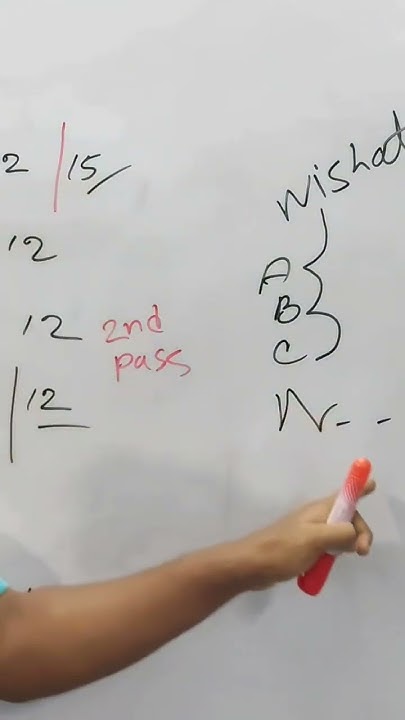 2 | 15
12
12 2nd
pass
| 12
Nishat
A
B
C
N - -